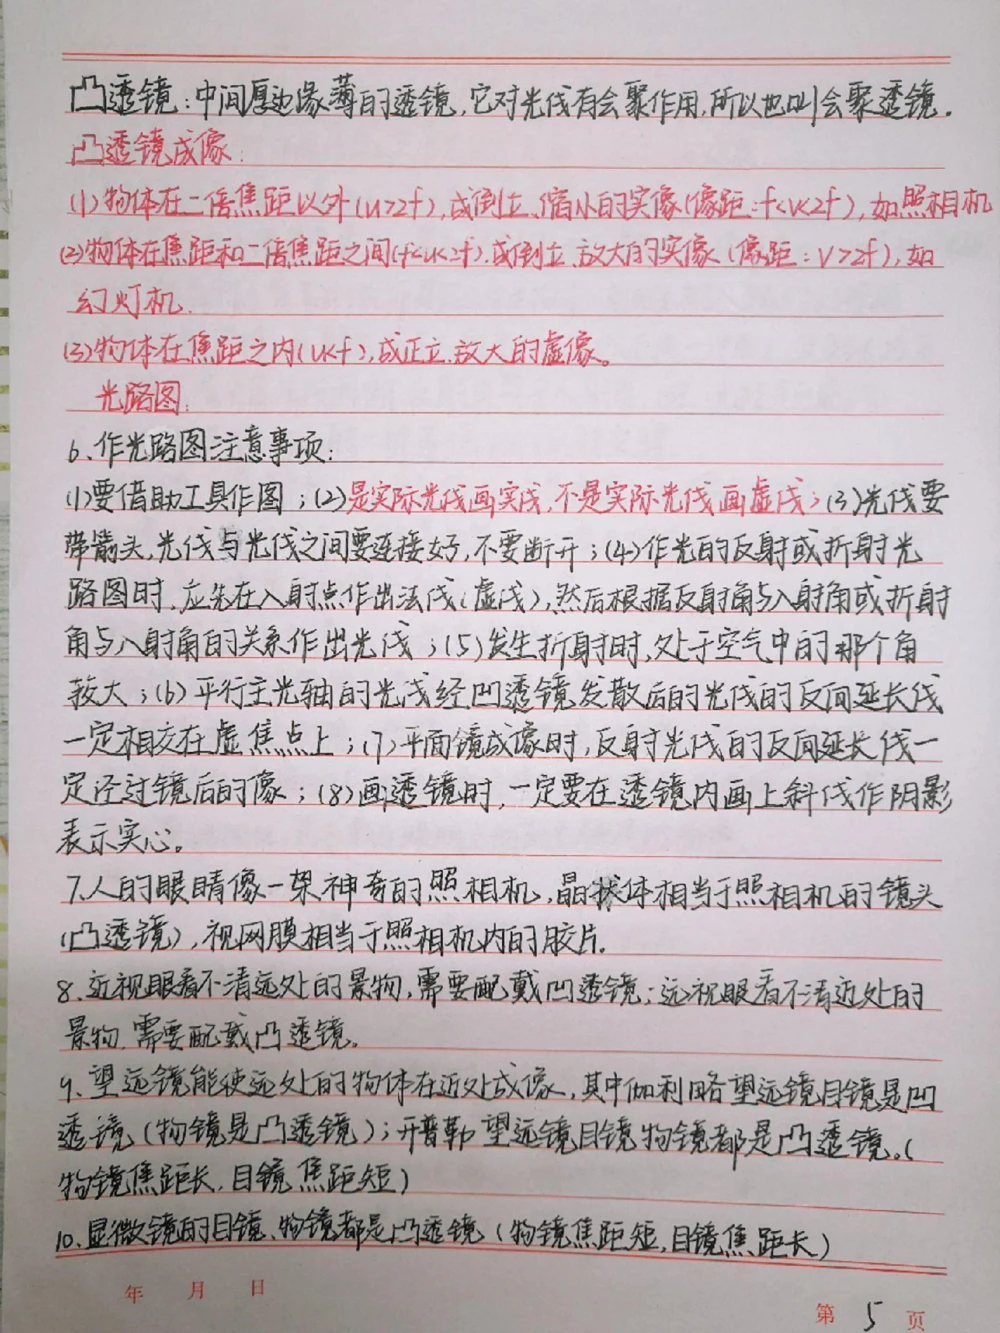 凸透镜:中间厚边缘薄的透镜,它对光线有会聚作用,所以也叫会聚透镜.
凸透镜成像:
(1)物体在二倍焦距以外(u>2f),成倒立、缩小的实像(像距:f<v<2f),如照相机
(2)物体在焦距和二倍焦距之间(f<u<2f).成倒立、放大的实像(像距:v>2f),如
幻灯机.
(3)物体在焦距之内(u<f),成正立、放大的虚像。
光路图:
6、作光路图注意事项:
(1)要借助工具作图;(2)是实际光线画实线,不是实际光线画虚线;(3)光线要
带箭头,光线与光线之间要连接好,不要断开;(4)作光的反射或折射光
路图时,应先在入射点作出法线(虚线),然后根据反射角与入射角或折射
角与入射角的关系作出光线;(5)发生折射时,处于空气中的那个角
较大;(6)平行主光轴的光线经凹透镜发散后的光线的反向延长线
一定相交在虚焦点上;(7)平面镜成像时,反射光线的反向延长线一
定经过镜后的像;(8)画透镜时,一定要在透镜内画上斜线作阴影
表示实心。
7.人的眼睛像一架神奇的照相机,晶状体相当于照相机的镜头
(凸透镜),视网膜相当于照相机内的胶片.
8.近视眼看不清远处的景物,需要配戴凹透镜;远视眼看不清近处的
景物,需要配戴凸透镜。
9、望远镜能使远处的物体在近处成像,其中伽利略望远镜目镜是凹
透镜(物镜是凸透镜);开普勒望远镜目镜物镜都是凸透镜。(
物镜焦距长,目镜焦距短)
10.显微镜的目镜、物镜都是凸透镜(物镜焦距短,目镜焦距长)
年 月 日
第 5 页